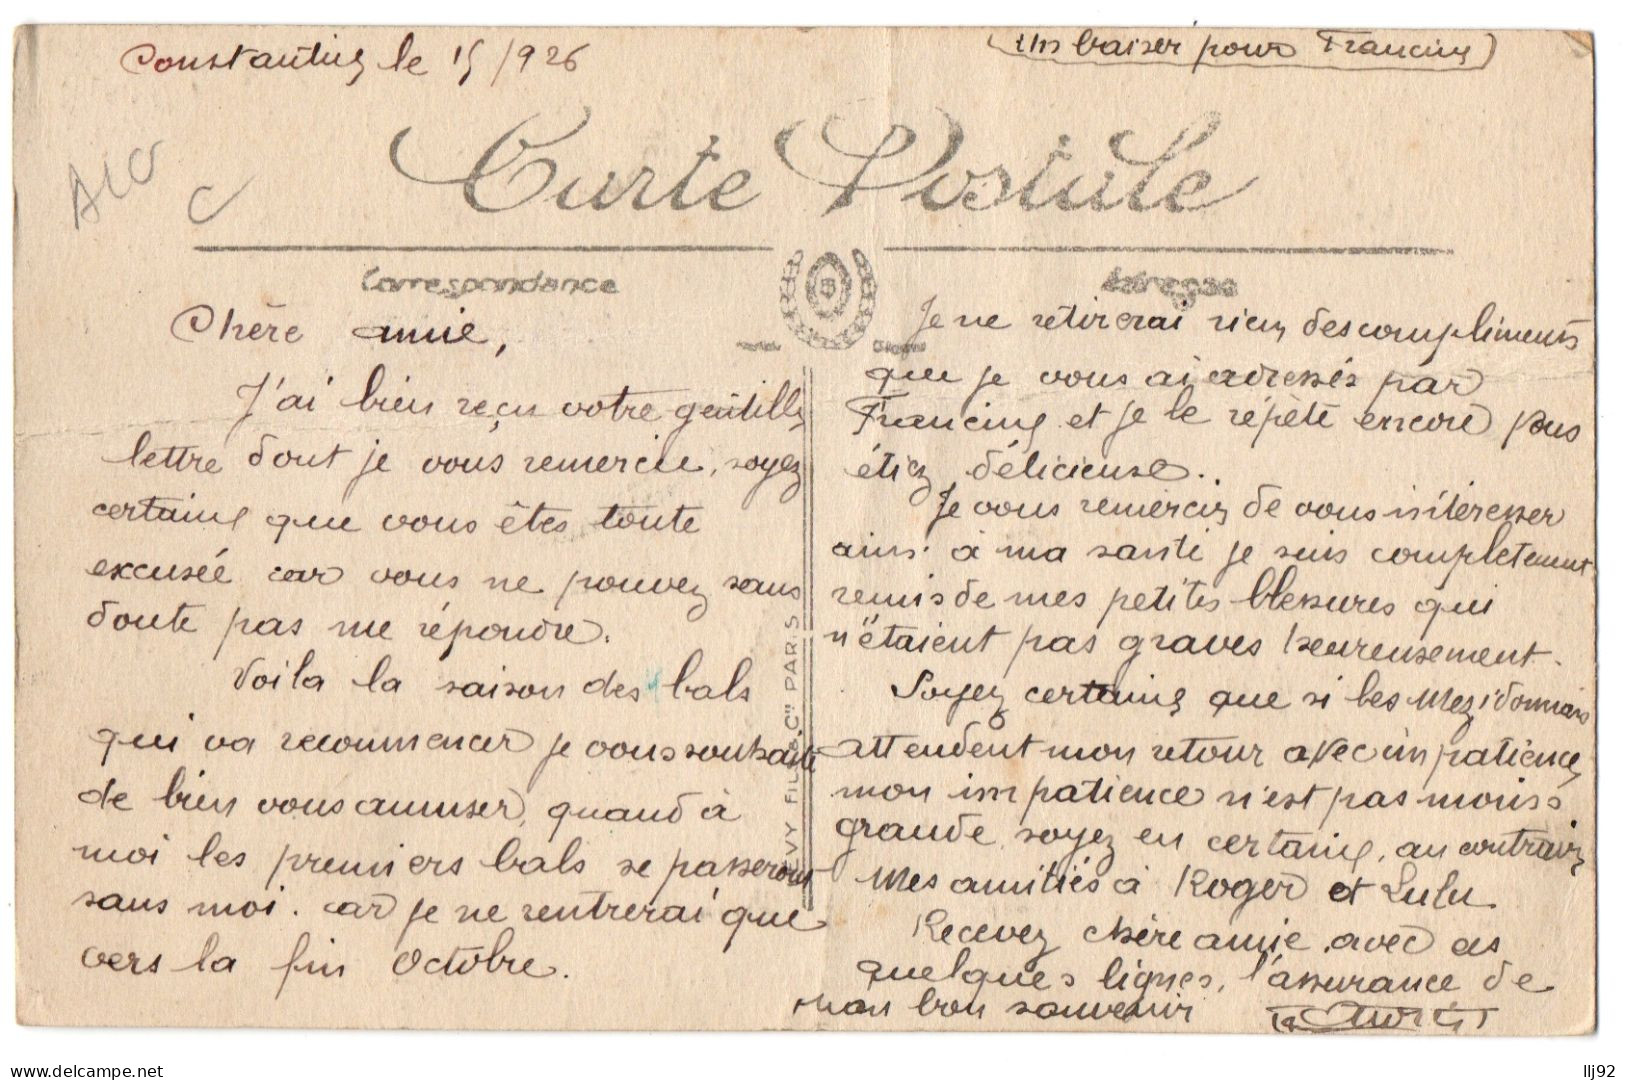 Constantine le 15/926
(un baiser pour Francine)
ALG
Carte Postale
Correspondance
Adresse
Chère amie,
J'ai bien reçu votre gentille
lettre dont je vous remercie, soyez
certaine que vous êtes toute
excusée car vous ne pouvez sans
doute pas me répondre.
Voila la saison des bals
qui va recommencer je vous souhaite
de bien vous amuser, quand à
moi les premiers bals se passeront
sans moi. car je ne rentrerai que
vers la fin Octobre.
LEVY FILS & Cie PARIS
Je ne retirerai rien des compliments
que je vous ai adressés par
Francine et je le répète encore vous
étiez délicieuse.
Je vous remercie de vous intéresser
ainsi à ma santé je suis completement
remis de mes petites blessures qui
n'étaient pas graves heureusement.
Soyez certaine que si les Mezidonnais
attendent mon retour avec impatience,
mon impatience n'est pas moins
grande soyez en certaine, au contraire
Mes amitiés à Roger et Lulu
Recevez chère amie, avec ces
quelques lignes, l'assurance de
mon bon souvenir
llj92